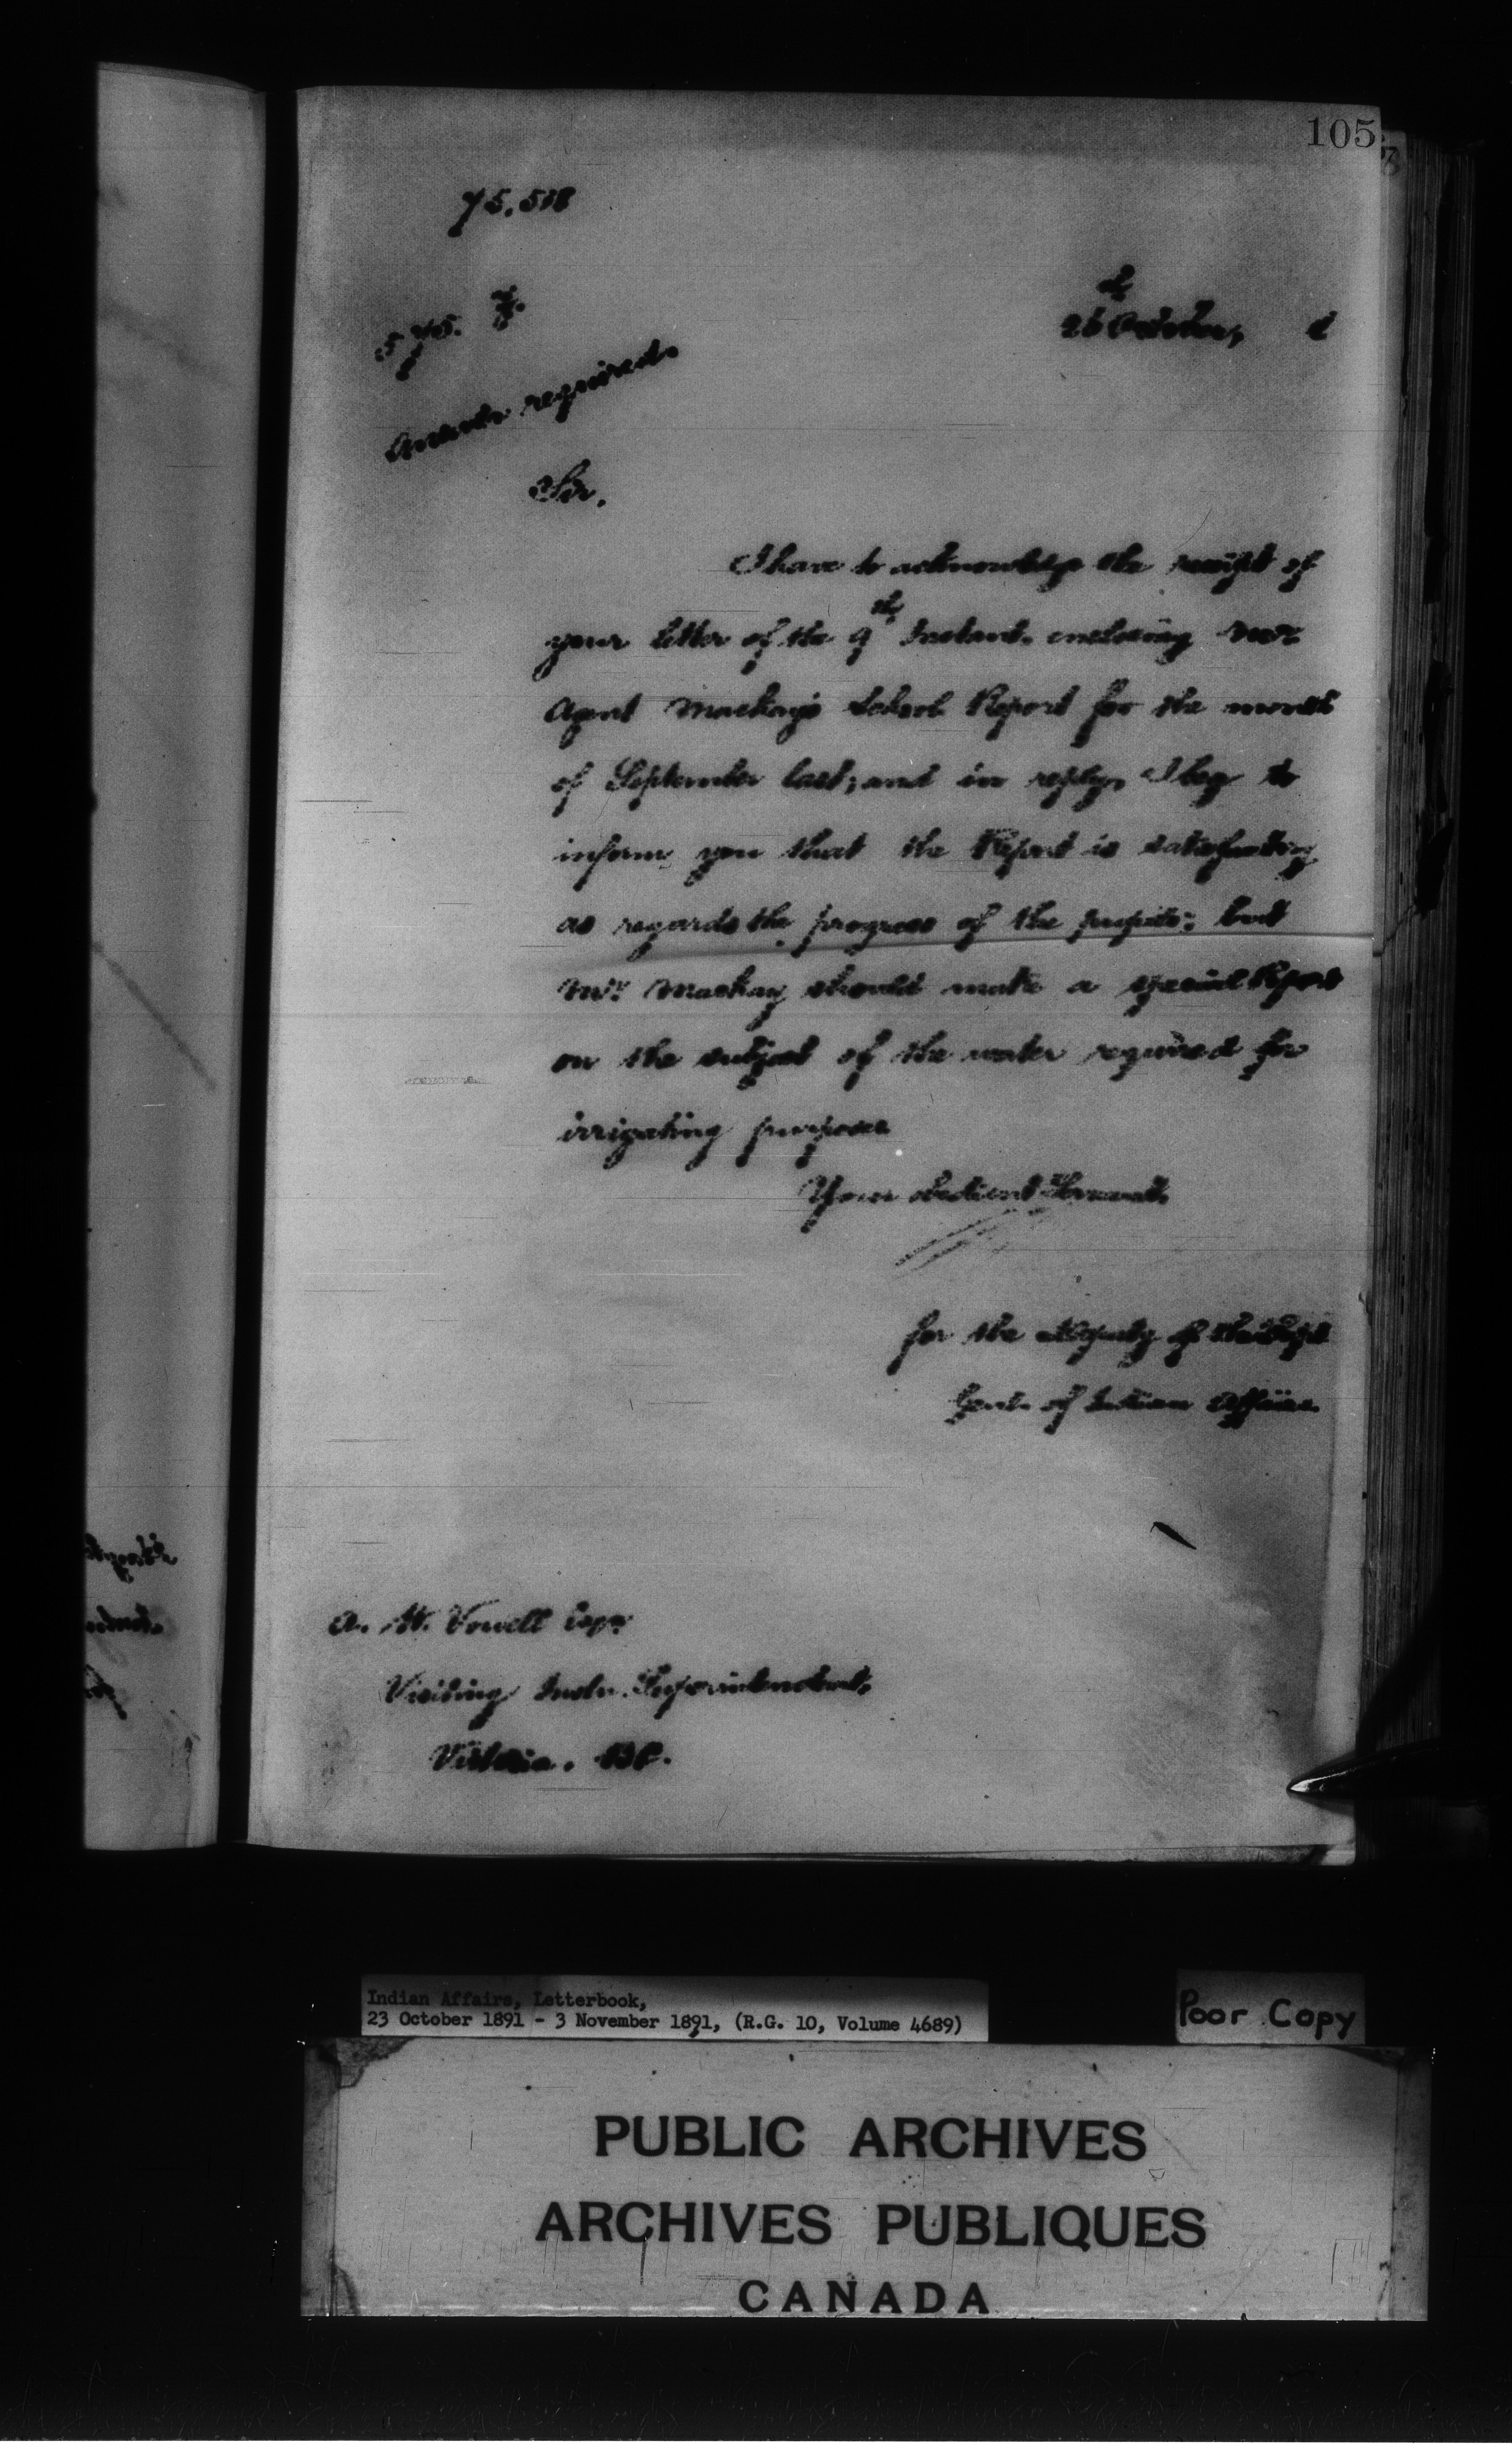 105
75,518
26th October, 1
Answer required.
Sir,
I have to acknowledge the receipt of
your letter of the 9th Instant, enclosing
Agent Mackay's School Report for the month
of September last; and in reply, I beg to
inform you that the Report is satisfactory
as regards the progress of the pupils; but
Mr. Mackay should make a special Report
on the subject of the water required for
irrigating purposes
Your obedient Servant,
for the Deputy of the Supt
Genl. of Indian Affairs.
A. W. Vowell Esqr
Visiting Indn. Superintendent,
Victoria. B.C.
Indian Affairs, Letterbook,
23 October 1891 - 3 November 1891, (R.G. 10, Volume 4689)
Poor Copy
PUBLIC ARCHIVES
ARCHIVES PUBLIQUES
CANADA